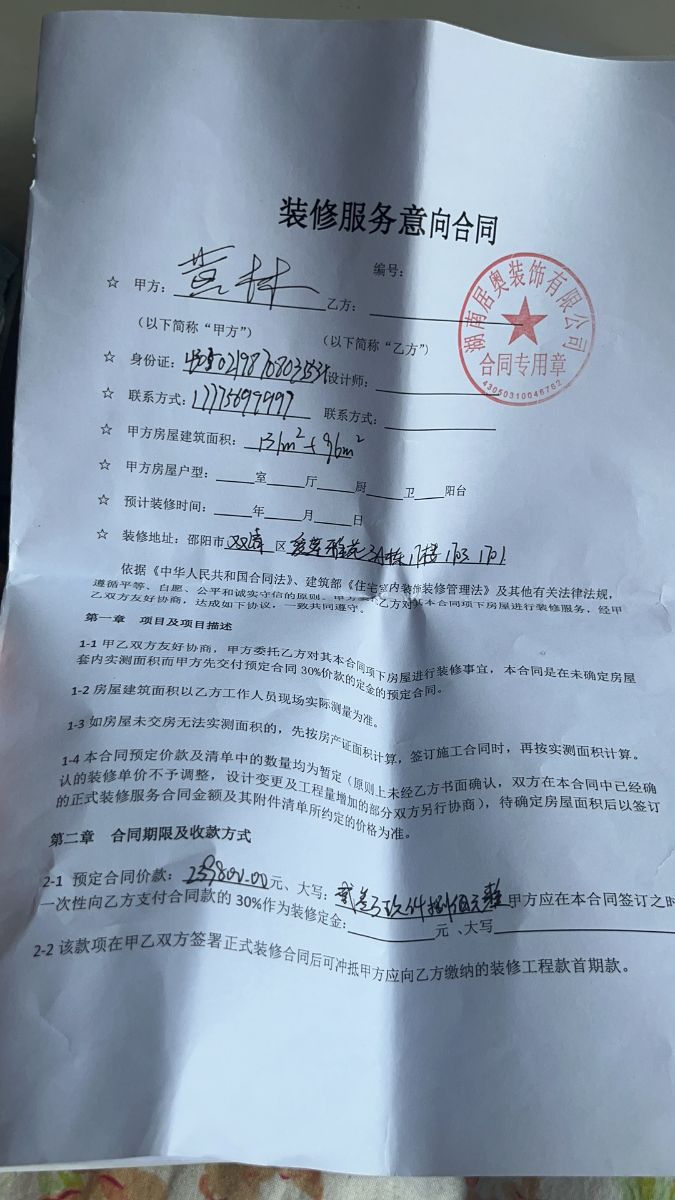 装修服务意向合同
编号:
☆ 甲方: 黄林 乙方:
(以下简称“甲方”) (以下简称“乙方”)
湖南居奥装饰有限公司
合同专用章
43050310046762
☆ 身份证: 设计师:
☆ 联系方式: 17775699997 联系方式:
☆ 甲方房屋建筑面积: 131m²+96m²
☆ 甲方房屋户型: 室 厅 厨 卫 阳台
☆ 预计装修时间: 年 月 日
☆ 装修地址: 邵阳市 双清 区 雅苑3A栋17楼1703 1701
依据《中华人民共和国合同法》、建筑部《住宅室内装饰装修管理法》及其他有关法律法规,
遵循平等、自愿、公平和诚实守信的原则,甲方委托乙方对其本合同项下房屋进行装修服务,经甲
乙双方友好协商,达成如下协议,一致共同遵守。
第一章 项目及项目描述
1-1 甲乙双方友好协商,甲方委托乙方对其本合同项下房屋进行装修事宜,本合同是在未确定房屋
套内实测面积而甲方先交付预定合同30%价款的定金的预定合同。
1-2 房屋建筑面积以乙方工作人员现场实际测量为准。
1-3 如房屋未交房无法实测面积的,先按房产证面积计算,签订施工合同时,再按实测面积计算。
1-4 本合同预定价款及清单中的数量均为暂定(原则上未经乙方书面确认,双方在本合同中已经确
认的装修单价不予调整,设计变更及工程量增加的部分双方另行协商),待确定房屋面积后以签订
的正式装修服务合同金额及其附件清单所约定的价格为准。
第二章 合同期限及收款方式
2-1 预定合同价款: 239800.00 元、大写: 甲方应在本合同签订之时
一次性向乙方支付合同款的30%作为装修定金: 元、大写
2-2 该款项在甲乙双方签署正式装修合同后可冲抵甲方应向乙方缴纳的装修工程款首期款。